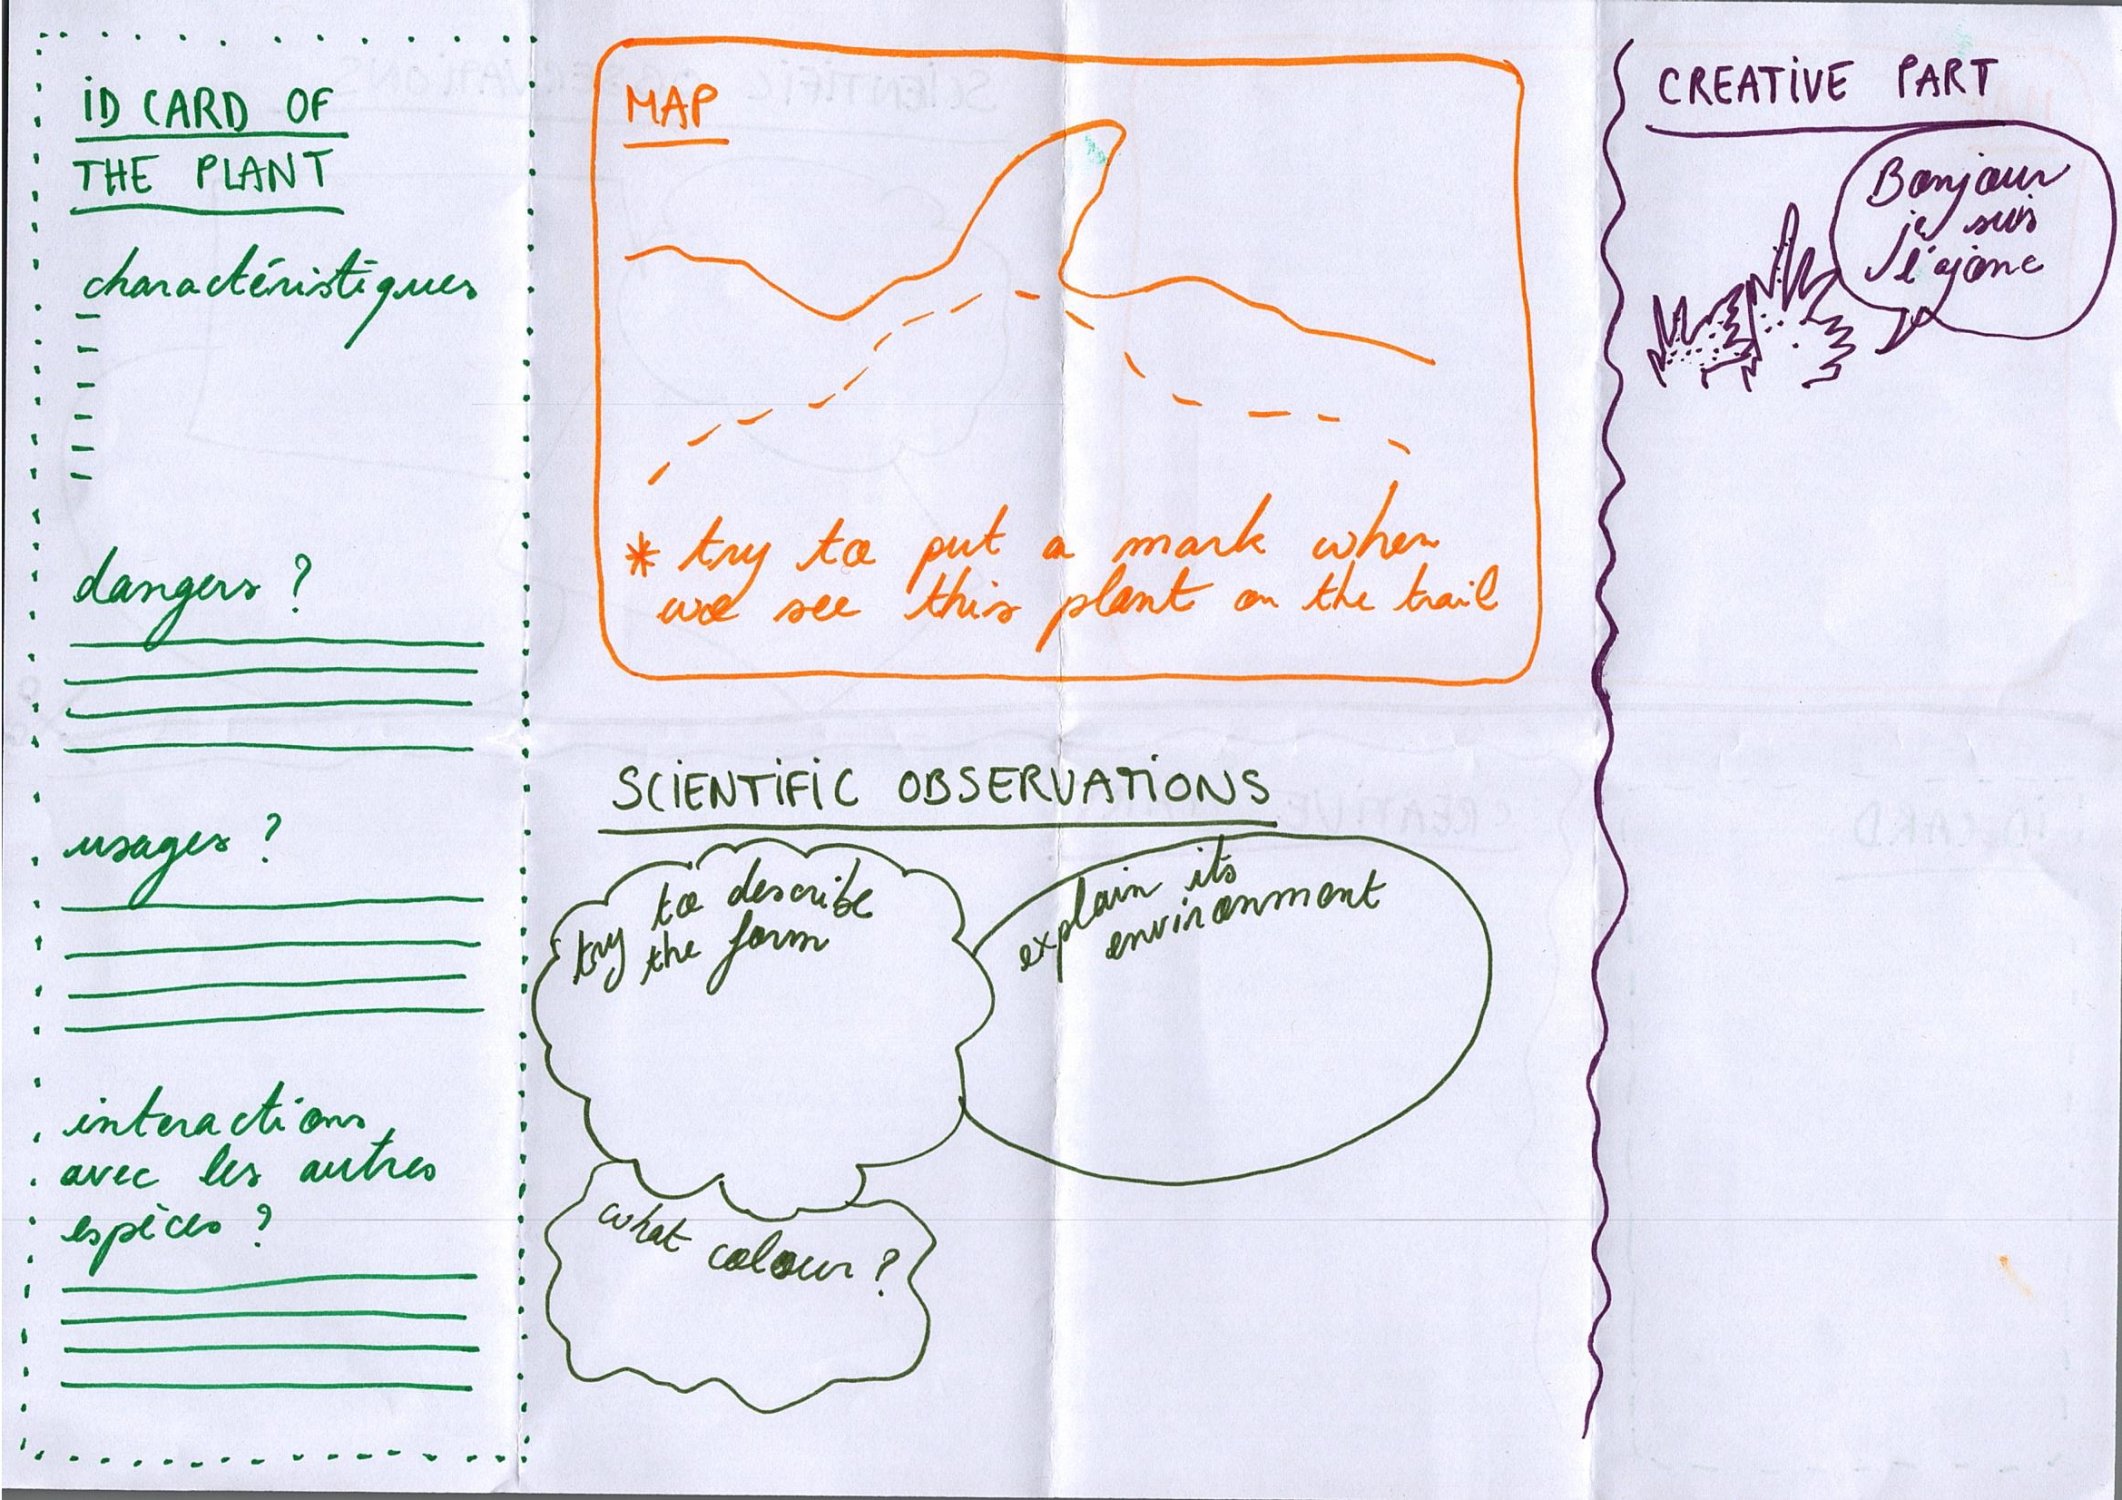 iD CARD OF
THE PLANT
charactéristiques
dangers ?
usages ?
interactions
avec les autres
espèces ?
MAP
* try to put a mark when
we see this plant on the trail
SCiENTiFiC OBSERVATiONS
try to describe
the form
explain its
environment
what colour ?
CREATiVE PART
Bonjour
je suis
l'ajonc